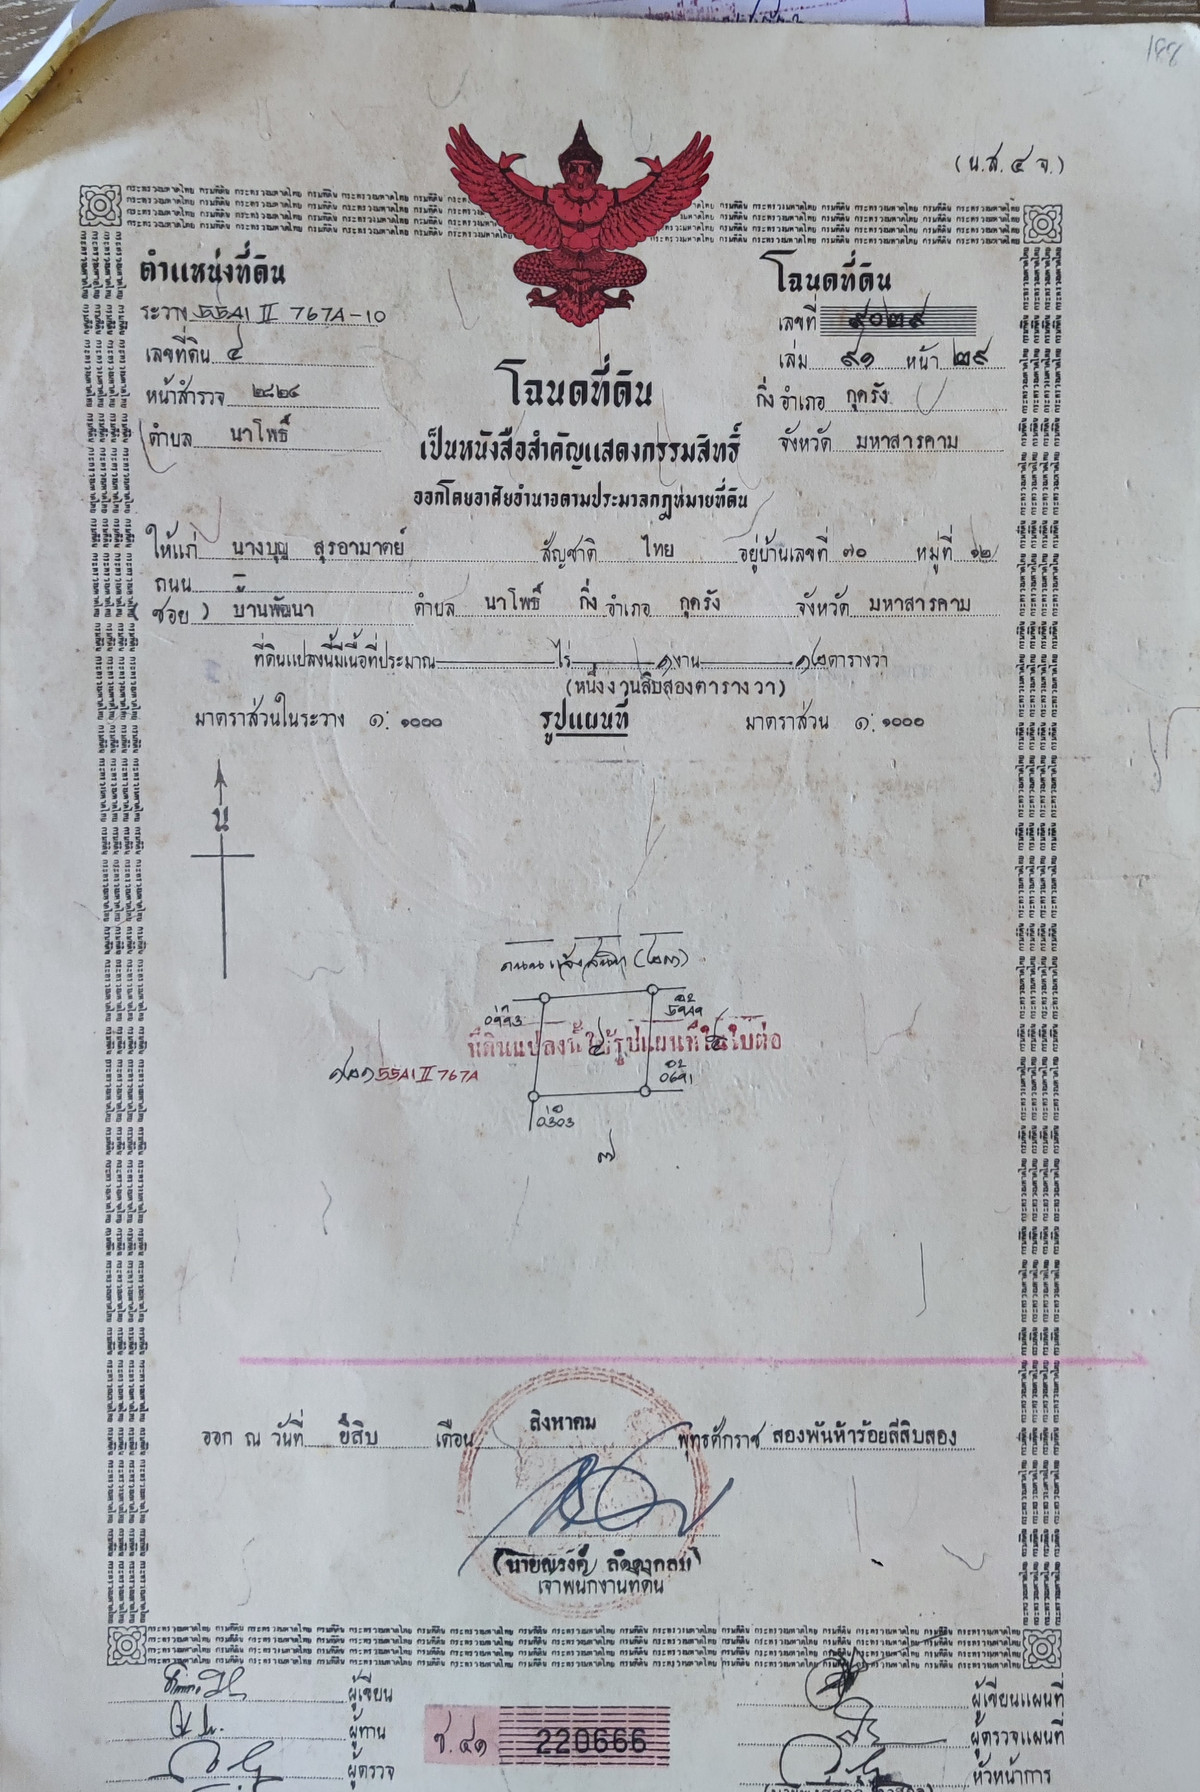 (น.ส. ๔ จ.)
ตำแหน่งที่ดิน
ระวาง 55A1 II 767A-10
เลขที่ดิน ๔
หน้าสำรวจ ๒๘๒๔
ตำบล นาโพธิ์
โฉนดที่ดิน
เลขที่ ๙๐๒๙
เล่ม ๙๑ หน้า ๒๙
กิ่ง อำเภอ กุดรัง
จังหวัด มหาสารคาม
โฉนดที่ดิน
เป็นหนังสือสำคัญแสดงกรรมสิทธิ์
ออกโดยอาศัยอำนาจตามประมวลกฎหมายที่ดิน
ให้แก่ นางบุญ สุรอามาตย์ สัญชาติ ไทย อยู่บ้านเลขที่ ๗๐ หมู่ที่ ๑๒
ถนน –
ซอย ) บ้านพัฒนา ตำบล นาโพธิ์ กิ่ง อำเภอ กุดรัง จังหวัด มหาสารคาม
ที่ดินแปลงนี้มีเนื้อที่ประมาณ ไร่ ๑ งาน ๑๒ ตารางวา
(หนึ่งงานสิบสองตารางวา)
มาตราส่วนในระวาง ๑: ๑๐๐๐ รูปแผนที่ มาตราส่วน ๑: ๑๐๐๐
น
ถนน (๒๓)
ที่ดินแปลงนี้ใช้รูปแผนที่ในใบต่อ
๔
55A1 II 767A
๗
ออก ณ วันที่ ยี่สิบ เดือน สิงหาคม พุทธศักราช สองพันห้าร้อยสี่สิบสอง
เจ้าพนักงานที่ดิน
ผู้เขียน
ผู้ทาน
ผู้ตรวจ
ช. ๔๑ 220666
ผู้เขียนแผนที่
ผู้ตรวจแผนที่
หัวหน้าการ